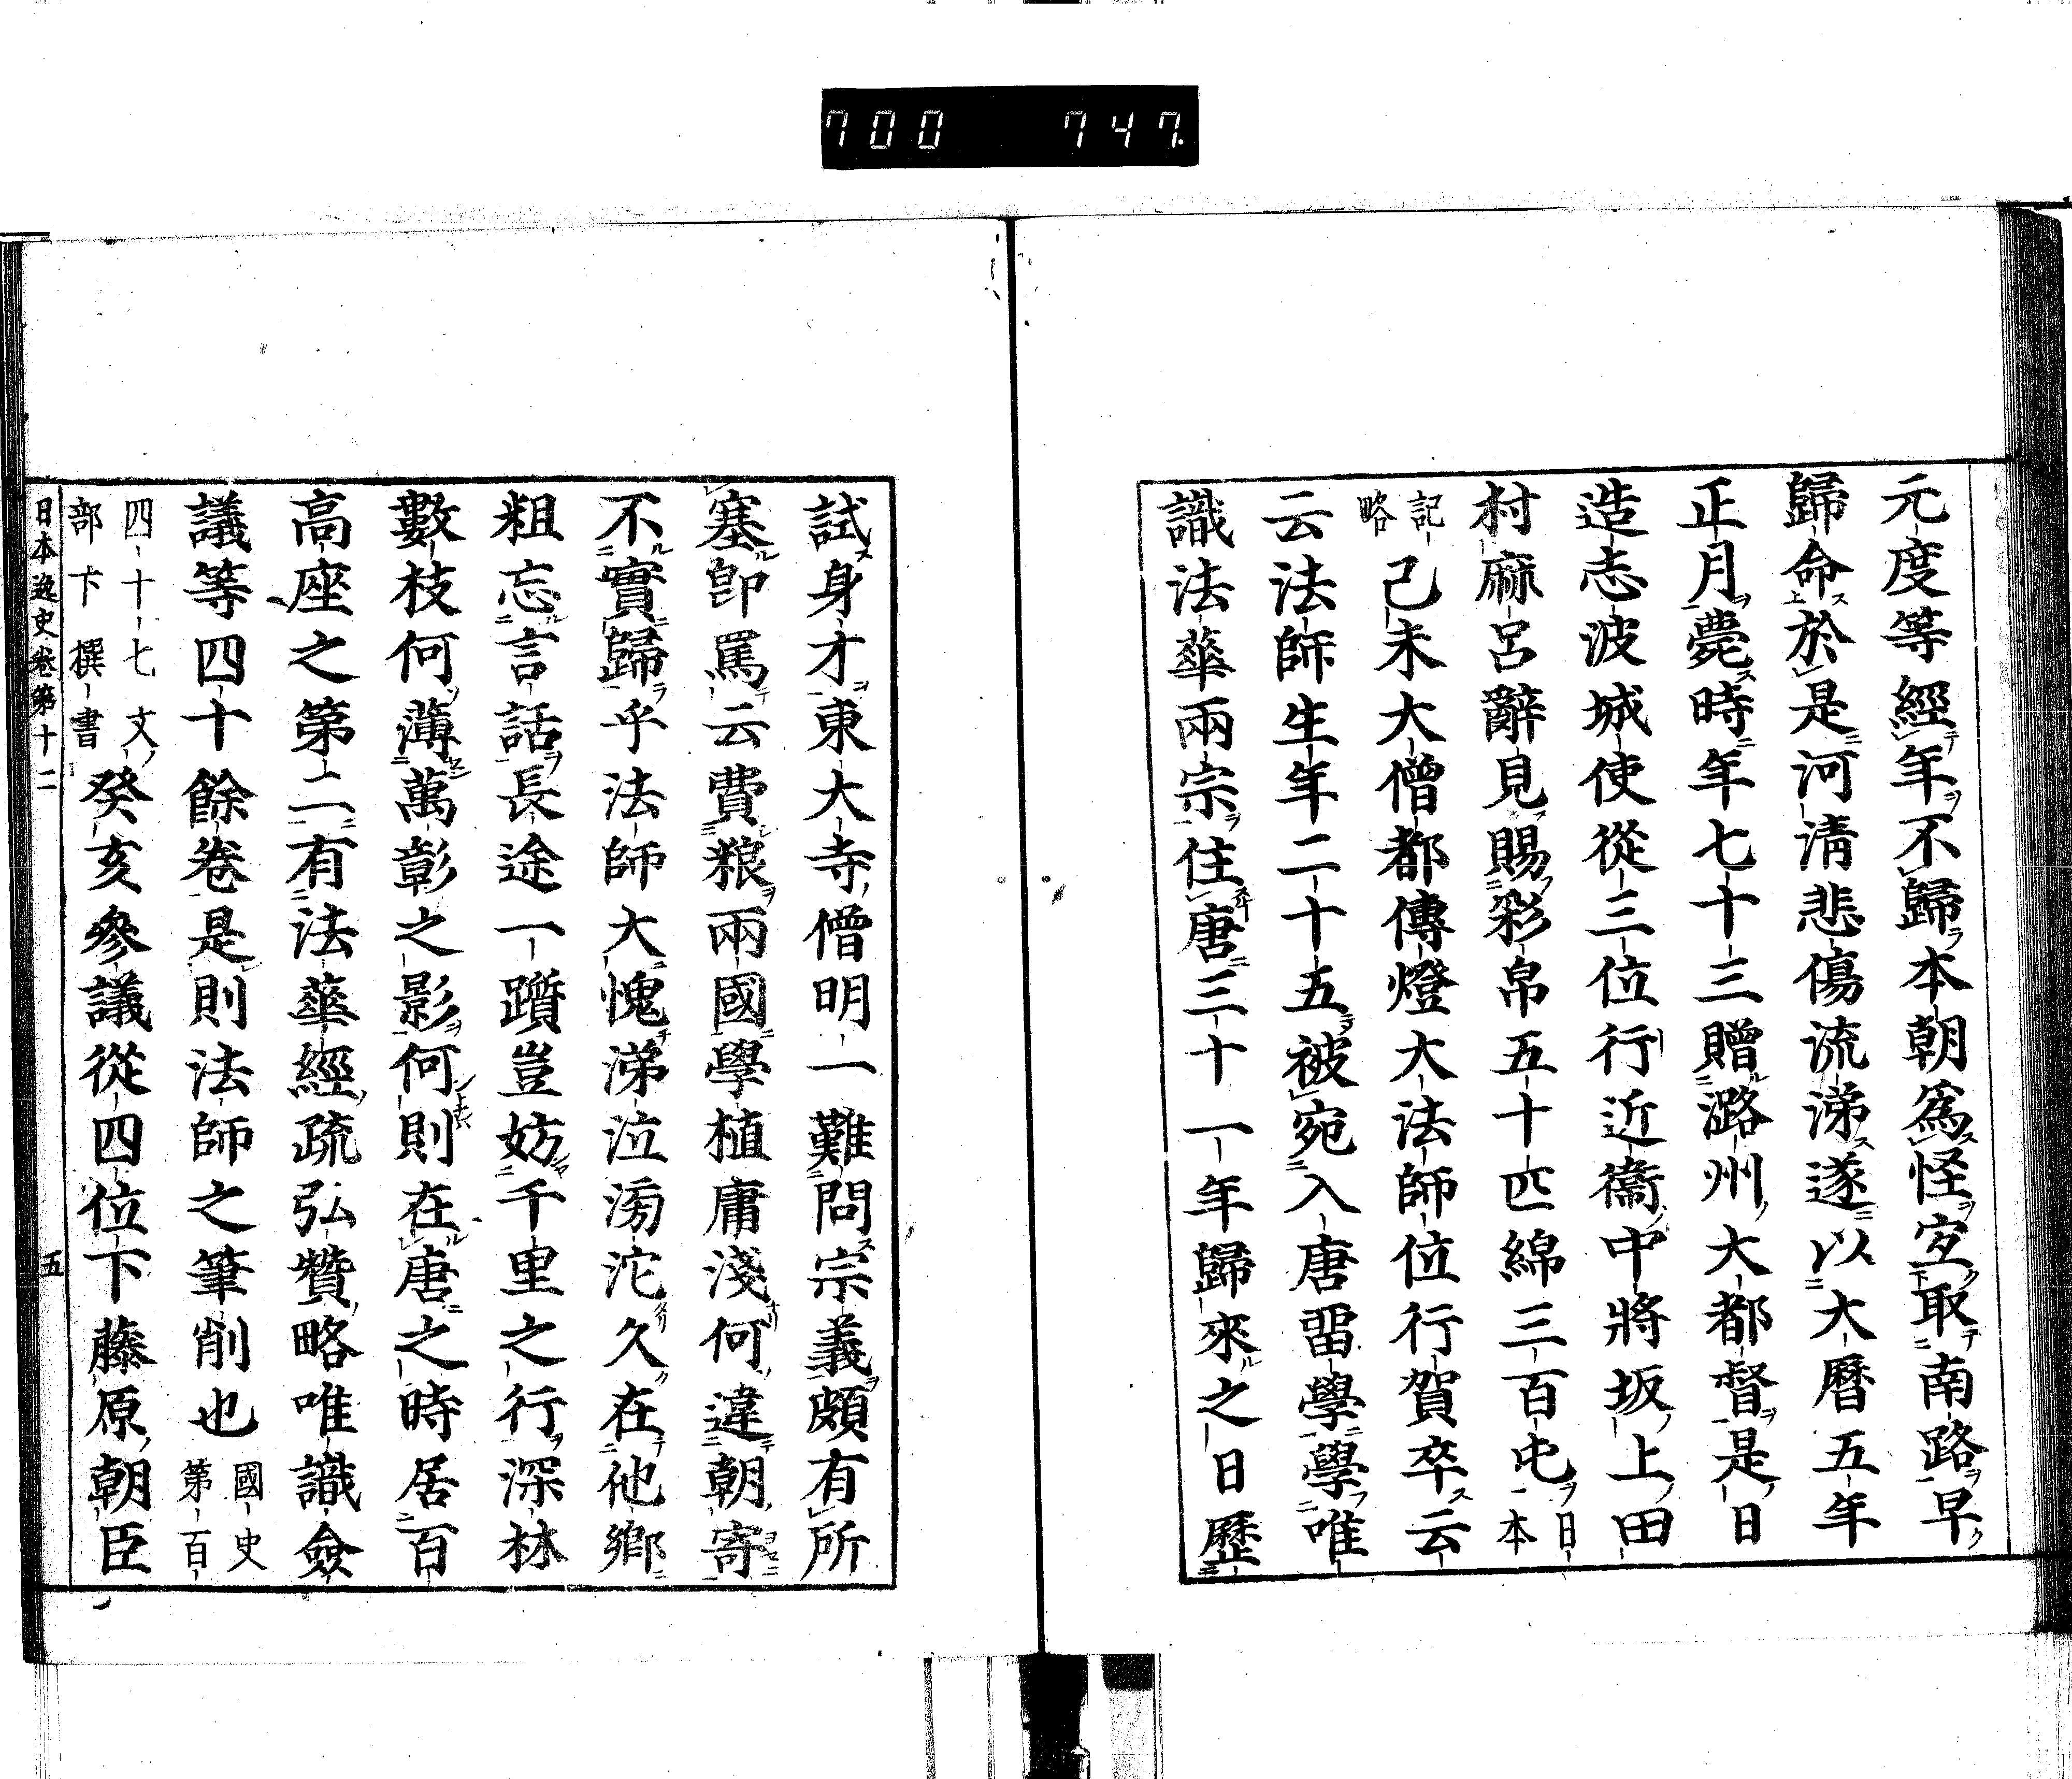 700 747.
元度等經年不歸本朝爲怪宜取南路早
歸命於是河清悲傷流涕遂以大曆五年
正月薨時年七十三贈潞州大都督是日
造志波城使從三位行近衞中將坂上田
村麻呂辭見賜彩帛五十匹綿三百屯日本
記略己未大僧都傳燈大法師位行賀卒云
云法師生年二十五被宛入唐畱學學唯
識法華兩宗住唐三十一年歸來之日歷
試身才東大寺僧明一難問宗義頗有所
塞卽罵云費粮兩國學植庸淺何違朝寄
不實歸乎法師大愧涕泣滂沱久在他鄉
粗忘言話長途一躓豈妨千里之行深林
數枝何薄萬彰之影何則在唐之時居百
高座之第二有法華經疏弘贊略唯識僉
議等四十餘卷是則法師之筆削也國史第百
四十七文部卞撰書癸亥參議從四位下藤原朝臣
日本逸史卷第十二 五